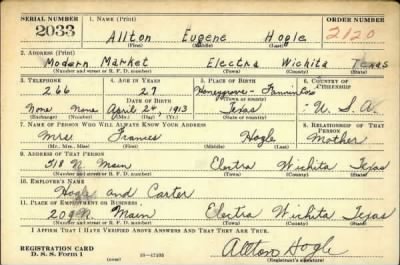 SERIAL NUMBER 1. NAME (Print) ORDER NUMBER
2033 Allton Eugene Hogle 2120
(First) (Middle) (Last)
2. ADDRESS (Print)
Modern Market Electra Wichita Texas
(Number and street or R. F. D. number) (Town) (County) (State)
3. TELEPHONE 4. AGE IN YEARS 5. PLACE OF BIRTH 6. COUNTRY OF CITIZENSHIP
266 27 Honeygrove - Fannin Co
DATE OF BIRTH (Town or county)
None None April 24, 1913 Texas U. S. A.
(Exchange) (Number) (Mo.) (Day) (Yr.) (State or country)
7. NAME OF PERSON WHO WILL ALWAYS KNOW YOUR ADDRESS 8. RELATIONSHIP OF THAT PERSON
Mrs Frances Hogle Mother
(Mr., Mrs., Miss) (First) (Middle) (Last)
9. ADDRESS OF THAT PERSON
518 N Main Electra Wichita Texas
(Number and street or R. F. D. number) (Town) (County) (State)
10. EMPLOYER'S NAME
Hogle and Carter
11. PLACE OF EMPLOYMENT OR BUSINESS
209 N Main Electra Wichita Texas
(Number and street or R. F. D. number) (Town) (County) (State)
I AFFIRM THAT I HAVE VERIFIED ABOVE ANSWERS AND THAT THEY ARE TRUE.
REGISTRATION CARD Allton Hogle
D. S. S. Form 1 (over) 16—17105 (Registrant's signature)